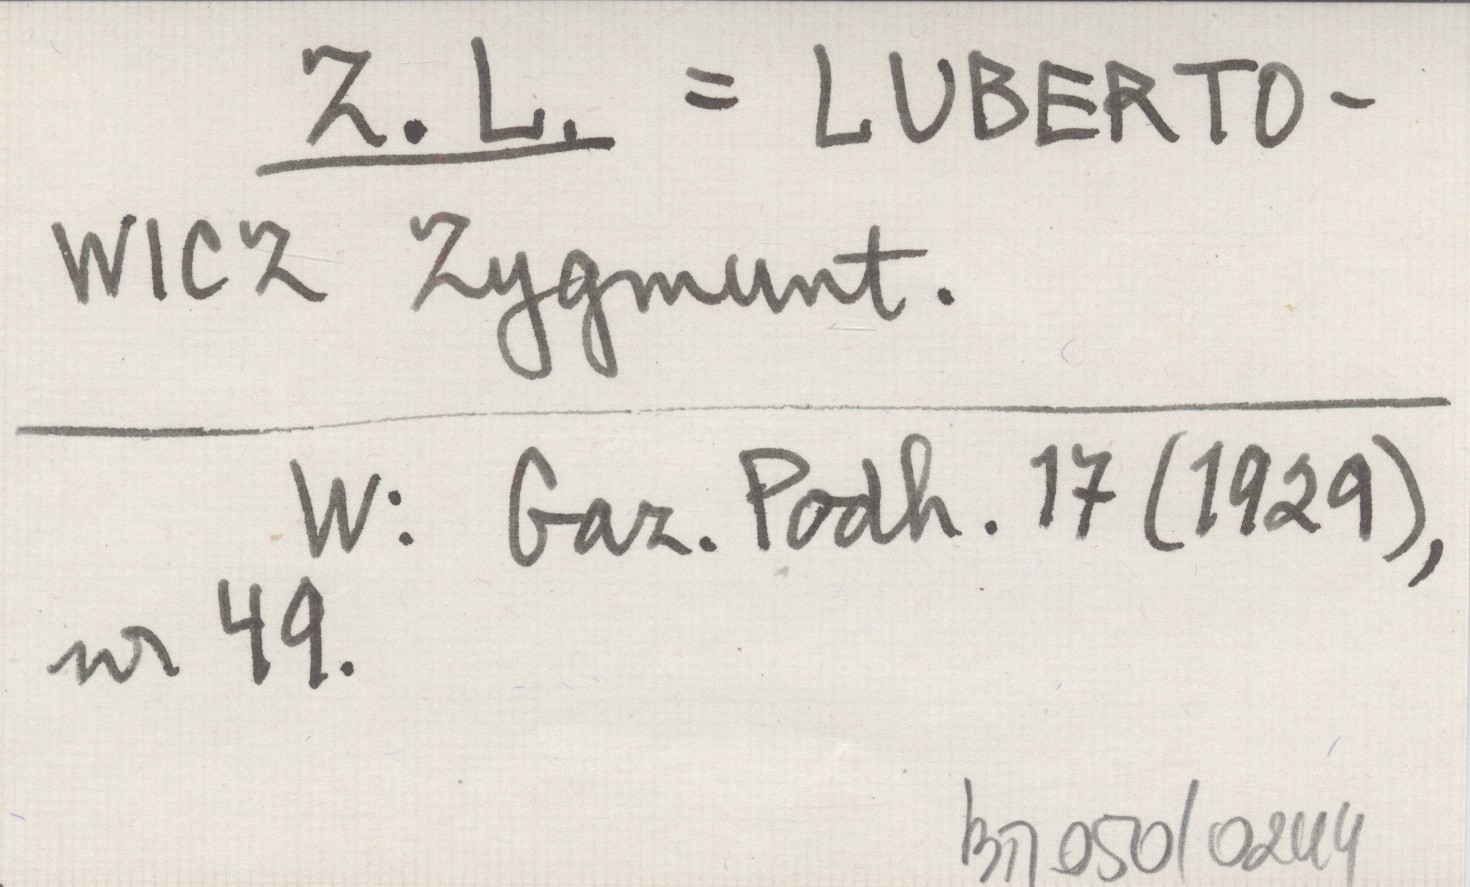 Z. L. = LUBERTO-
WICZ Zygmunt.
W: Gaz. Podh. 17 (1929),
nr 49.
050/0244